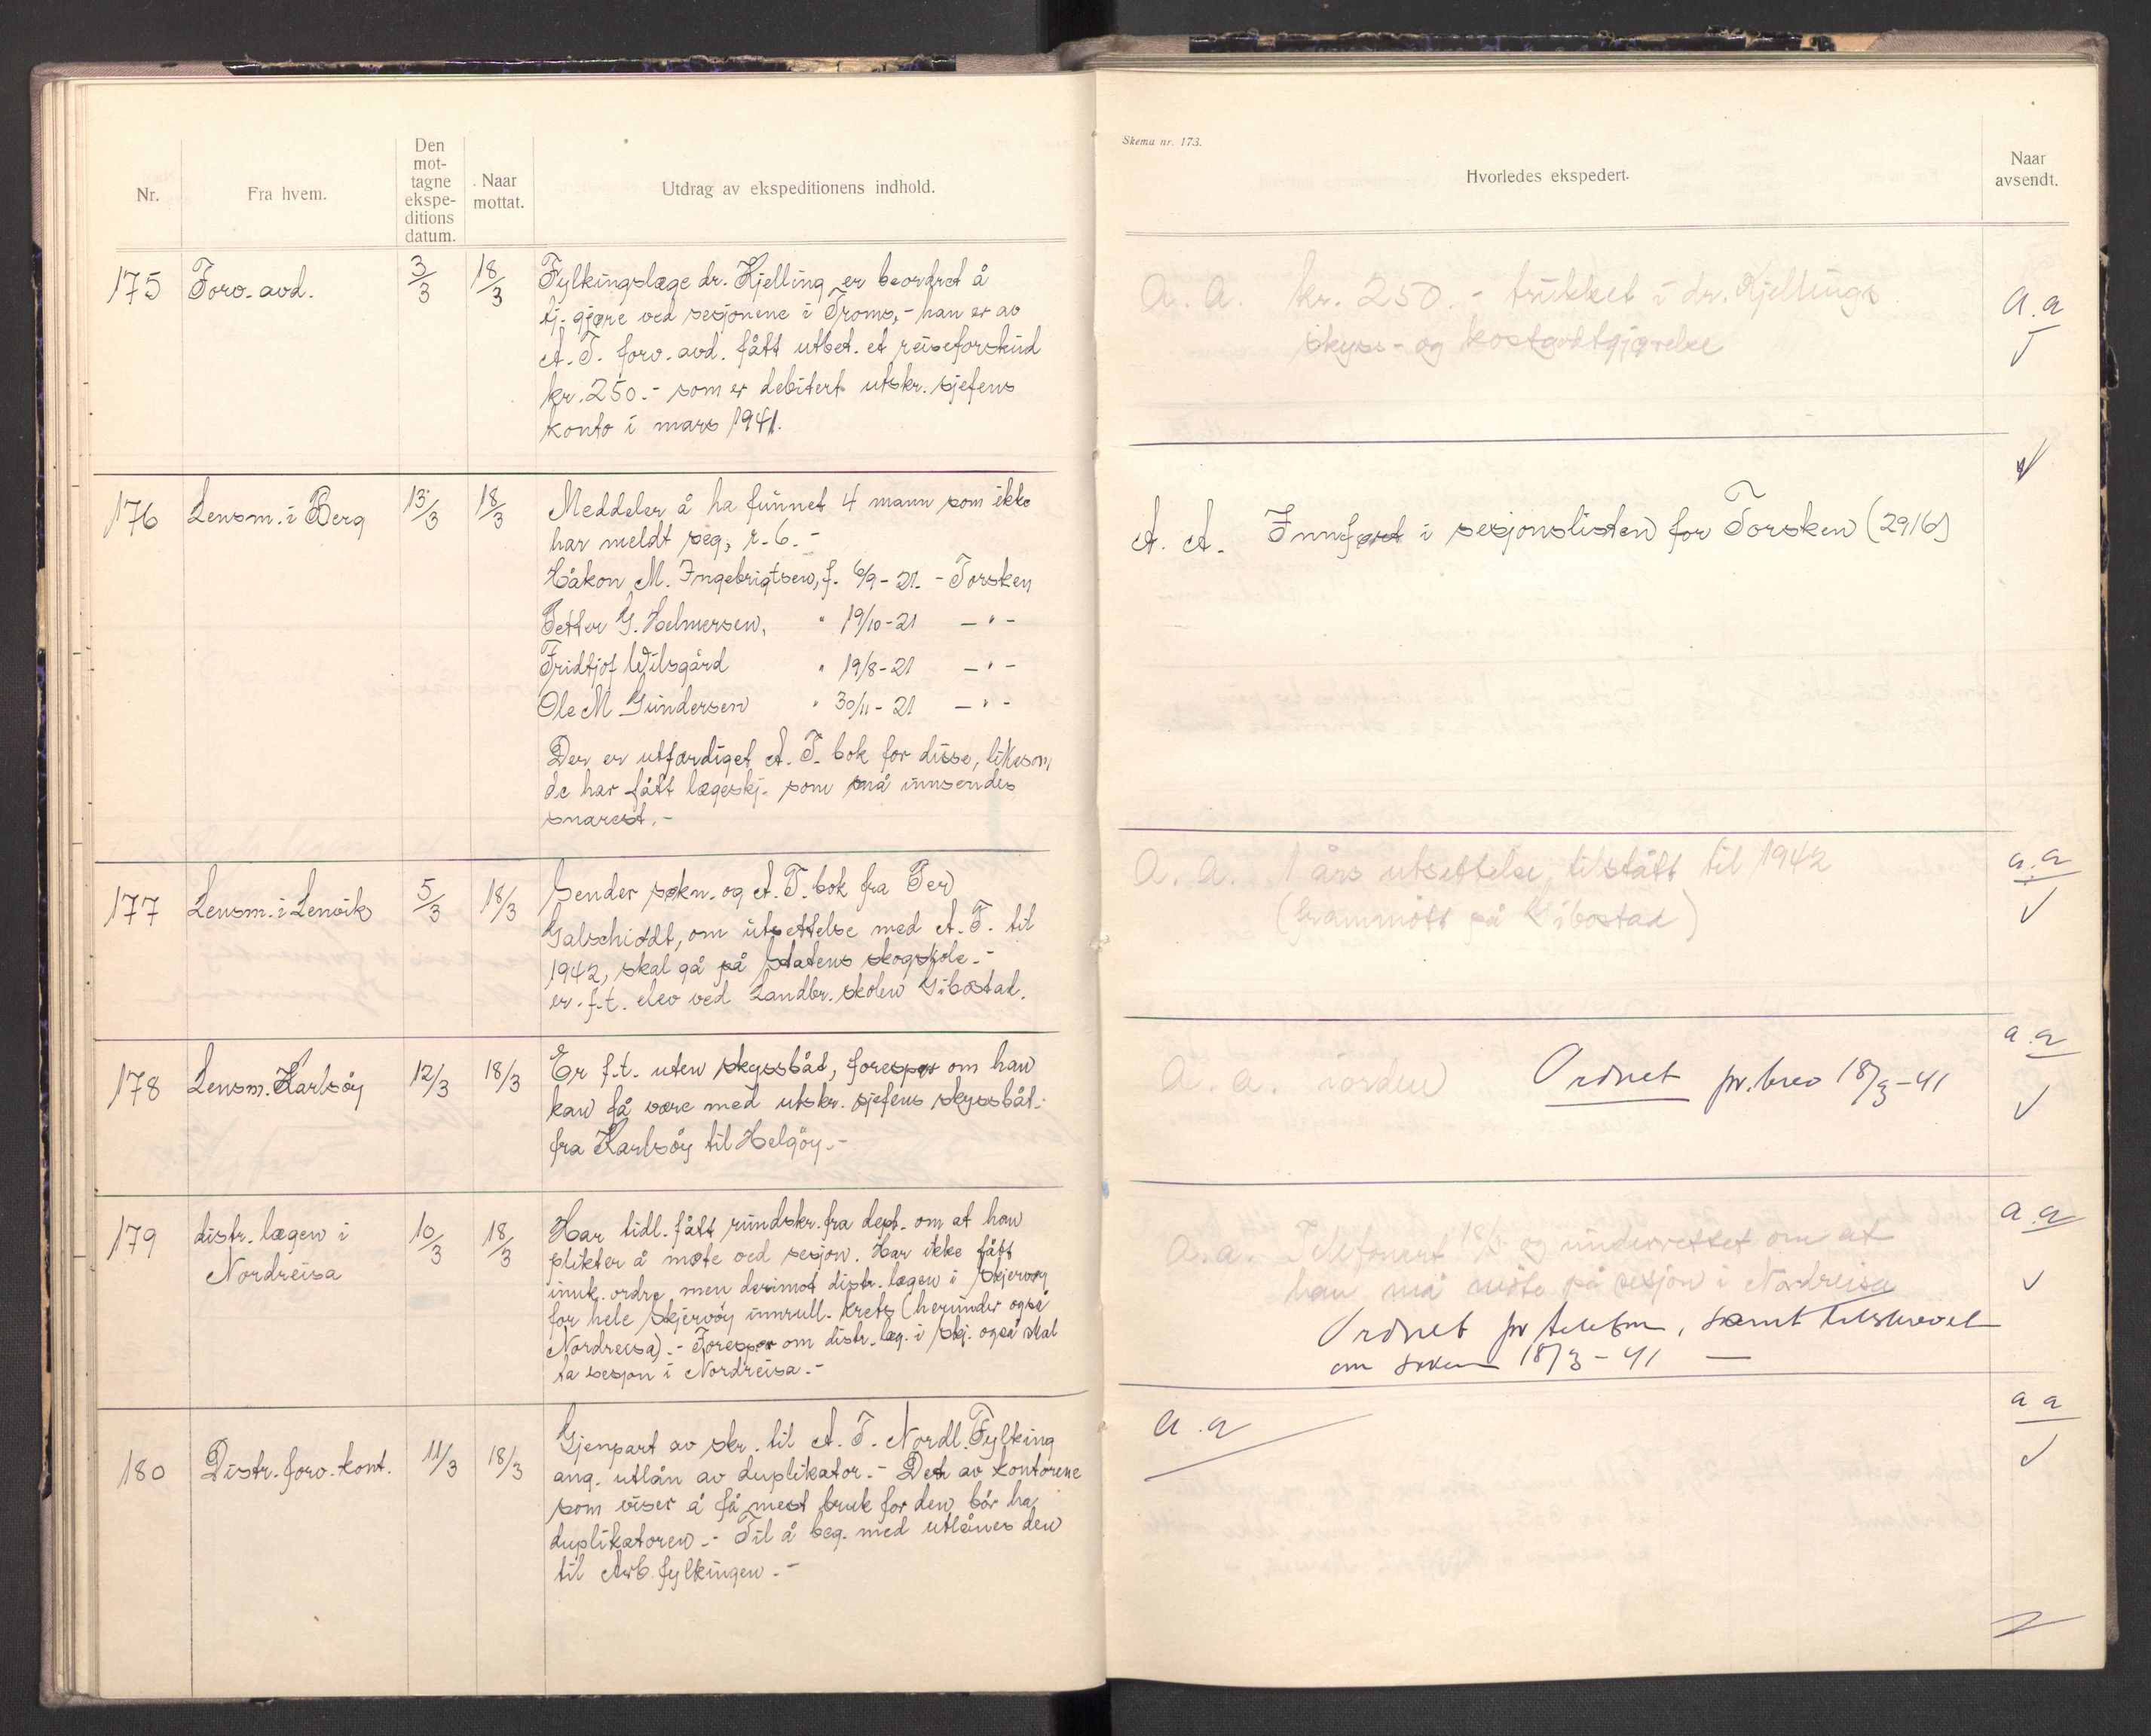 Nr.
Fra hvem.
Den
mot-
tagne
ekspe-
ditions
datum.
Naar
mottat.
Utdrag av ekspeditionens indhold.
175
Forv. avd.
3/3
18/3
Fylkingslæge dr. Kjelling er beordret å
tj. gjøre ved sesjonene i Troms, - han er av
A. T. forv. avd. fått utbet. et reiseforskud
kr. 250.- som er debitert utskr. sjefens
konto i mars 1941.
176
Lensm. i Berg
13/3
18/3
Meddeler å ha funnet 4 mann som ikke
har meldt seg, r. 6. -
Håkon M. Ingebrigtsen, f. 6/9-21. - Torsken
Petter G. Helmersen, " 19/10-21 - " -
Fridtjof Wilsgård " 19/8-21 - " -
Ole M Gundersen " 30/11-21 - " -
Der er utferdiget A. T. bok for disse, likesom
de har fått lægeskj. som må innsendes
snarest. -
177
Lensm. i Lenvik
5/3
18/3
Sender søkn. og A. T. bok fra Per
Galschiødt, om utsettelse med A. T. til
1942, skal gå på Statens skogskole. -
er f.t. elev ved Landbr. skolen Gibostad.
178
Lensm. Karlsöy
12/3
18/3
Er f.t. uten skyssbåt, forespør om han
kan få være med utskr. sjefens skyssbåt
fra Karlsöy til Helgöy. -
179
distr. lægen i
Nordreisa
10/3
18/3
Har tidl. fått rundskr. fra dept. om at han
plikter å møte ved sesjon. Har ikke fått
innk. ordre men derimot distr. lægen i Skjervøy
for hele Skjervöy innrull. krets (herunder også
Nordreisa). - Forespør om distr. læg. i Skj. også skal
ta sesjon i Nordreisa. -
180
Distr. forv. kont.
11/3
18/3
Gjenpart av skr. til A. T. Nordl. Fylking
ang. utlån av duplikator. - Det av kontorene
som viser å få mest bruk for den bör ha
duplikatoren. - Til å beg. med utlånes den
til Arb. fylkingen. -
Skema nr. 173.
Hvorledes ekspedert.
Naar
avsendt.
A. A. kr. 250.- trukket i dr. Kjellings
skyss- og kostgodtgjørelse
a.a
A. A. Innført i sesjonslisten for Torsken (2916)
A. A. 1 års utsettelse tilstått til 1942
(frammött på Gibostad)
a.a
A. A. iorden Ordnet pr. brev 18/3-41
a.a
A. a. Telefonert 18/3 og underrettet om at
han må möte på sesjon i Nordreisa
Ordnet pr telefon, samt tilskrevet
om saken 18/3-41 -
a.a
a.a
a a